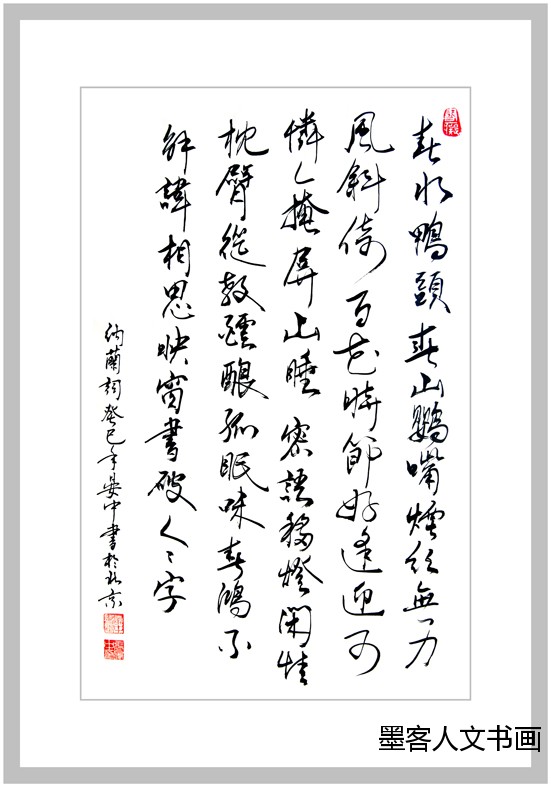 春水鴨頭春山鸚嘴煙絲無力
風斜倚百花時節好逢迎可
憐人掩屏山睡密語移燈閑情
枕臂從教醞釀孤眠味春鴻不
解諱相思映窗書破人〻字
納蘭詞癸巳年晏中書於北京
墨客人文书画